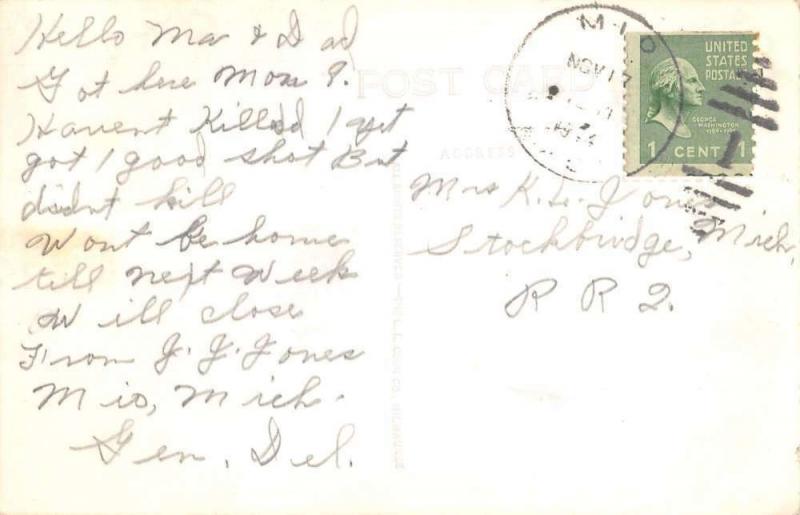 Hello Ma & Dad
Got here Mon 9.
Havent Killed 1 yet
got 1 good shot But
didnt kill
Wont be home
till next Week
Will close
From J. J. Jones
Mio, Mich.
Gen. Del.
POST CARD
ADDRESS
MIO
NOV 17
UNITED
STATES
POSTAGE
GEORGE
WASHINGTON
1 CENT 1
Mrs K. L. Jones
Stockbridge, Mich.
R R 2.